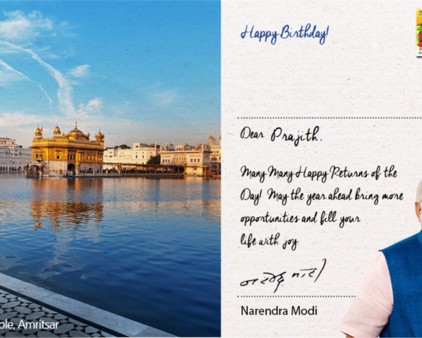 Happy Birthday!
Dear Prajith.
Many Many Happy Returns of the
Day! May the year ahead bring more
opportunities and fill your
life with joy
नरेंद्र मोदी
Narendra Modi
ple, Amritsar